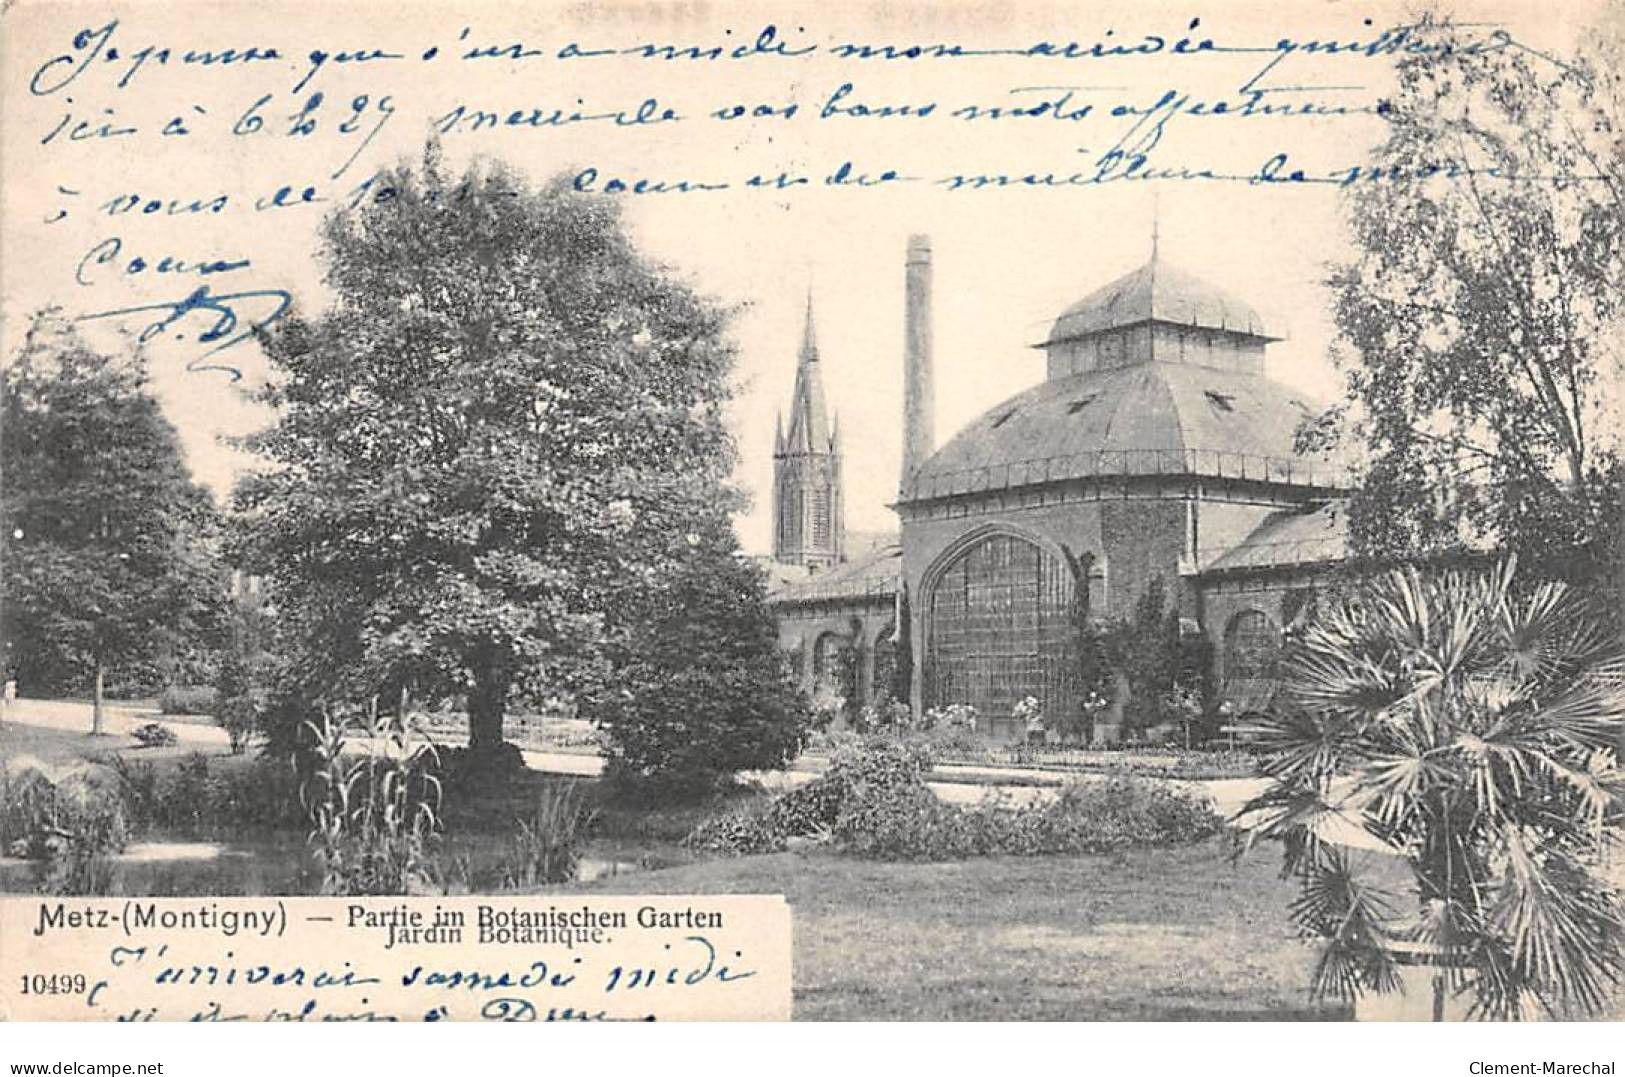 Je pense que c'est a midi mon arrivée quittant
ici à 6 h 27 merci de vos bons mots affectueux
à vous de cœur et du meilleur de mon
Cœur
Metz-(Montigny) — Partie im Botanischen Garten
Jardin Botanique.
10499
J'arriverai samedi midi
si il plait à Dieu
delcampe.net
Clement-Marechal